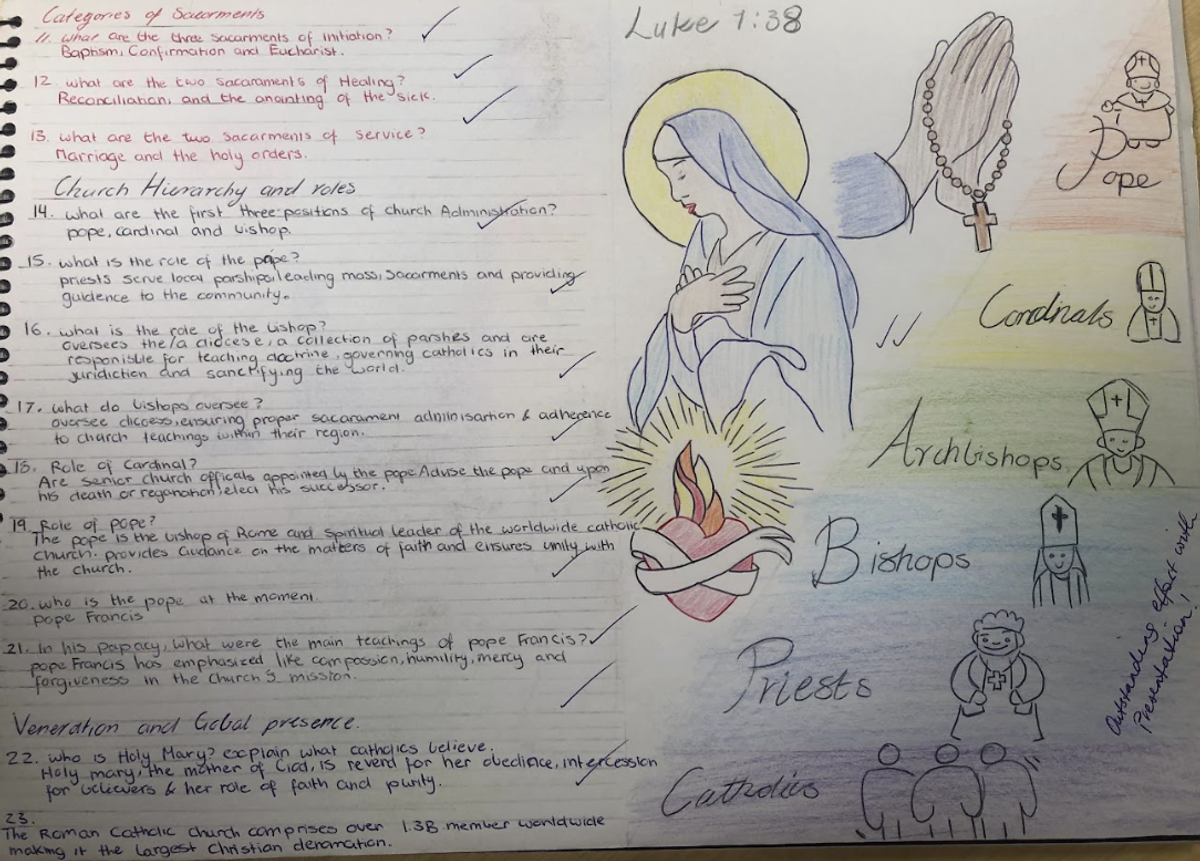 Categories of Sacarments
11. what are the three sacarments of initiation?
Baptism, Confirmation and Eucharist.
12. what are the two sacaraments of Healing?
Reconciliation, and the anointing of the sick.
13. what are the two sacarments of service?
Marriage and the holy orders.
Church Hierarchy and roles
14. what are the first three positions of church Administration?
pope, cardinal and bishop.
15. what is the role of the pope?
priests serve local parships, leading mass, sacarments and providing
guidence to the community.
16. what is the role of the bishop?
oversees the/a diocese, a collection of parshes and are
responisble for teaching doctrine, governing catholics in their
juridiction and sanctifying the world.
17. what do bishops oversee?
oversee dioceses, ensuring proper sacarament adminisartion & adherence
to church teachings within their region.
18. Role of Cardinal?
Are senior church officals appointed by the pope. Advise the pope and upon
his death or regonation, elect his successor.
19. Role of pope?
The pope is the bishop of Rome and spiritual leader of the worldwide catholic
church. provides Guidance on the matters of faith and ensures unity with
the church.
20. who is the pope at the moment
pope Francis
21. In his papacy, what were the main teachings of pope Francis?
pope Francis has emphasized like compassion, humility, mercy and
forgiveness in the church's mission.
Veneration and Global presence.
22. who is Holy Mary? explain what catholics believe.
Holy mary, the mother of God, is reverd for her obedience, intercession
for believers & her role of faith and purity.
23.
The Roman Catholic church comprises over 1.3B member worldwide
making it the largest Christian denomation.
Luke 1:38
Pope
Cardinals
Archbishops
Bishops
Priests
Catholics
Outstanding effort with
Presentation!